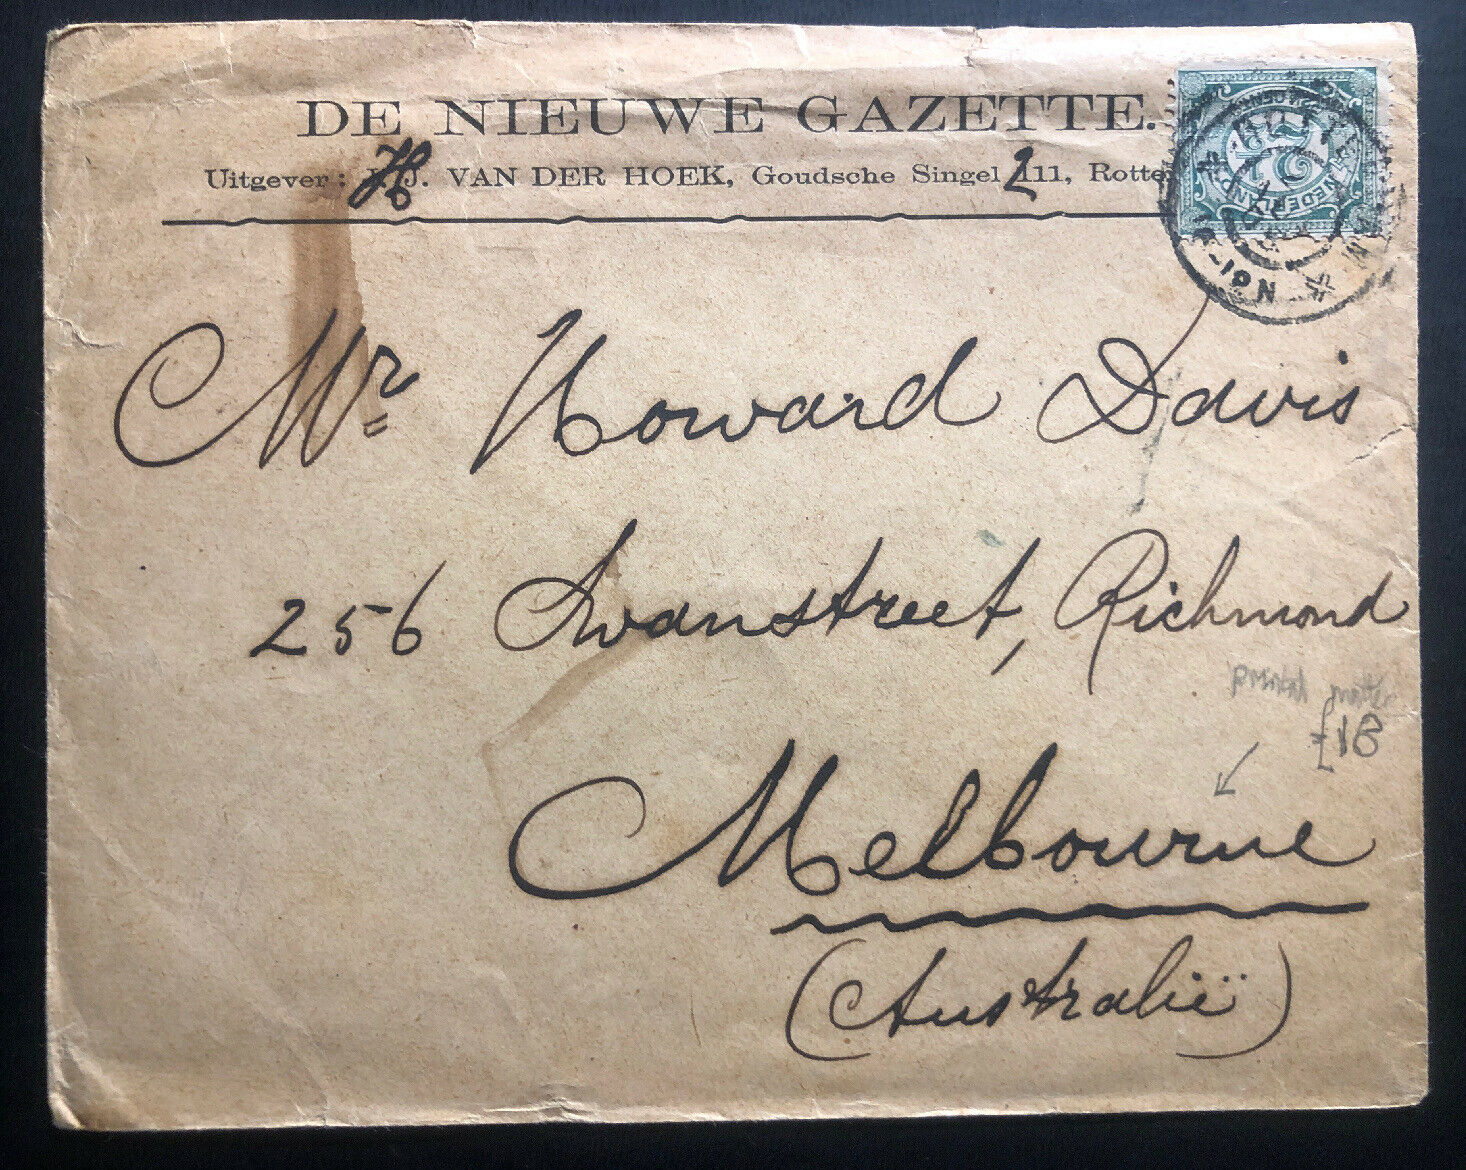 DE NIEUWE GAZETTE.
Uitgever: H. J. VAN DER HOEK, Goudsche Singel 211, Rotte
2½ NEDERLAND
ROTTERDAM
Mr Howard Davis
256 Swanstreet, Richmond
printed matter
£18
Melbourne
(Australië)